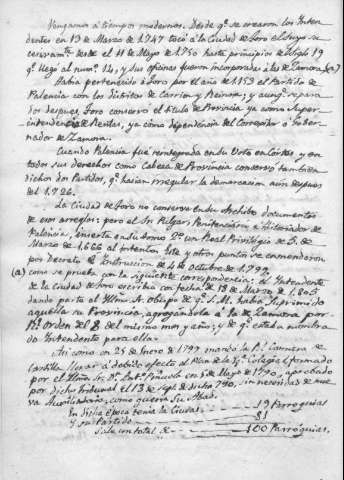 Vengamos á tiempos modernos. Desde q.e se crearon los Inten
dentes en 13 de Marzo de 1747 tocó á la Ciudad de Toro el suyo se
cerivam.te desde el 11 de Mayo de 1750 hasta principios de siglo 19
q.e llegó al num.o 14, y sus oficinas fueron incorporadas á las de Zamora (a)
Habia pertenecido á Toro por el año de 1753 el Partido de
Palencia con los distritos de Carrion y Reinosa, y aunq.e sepa
rados despues, Toro conservó el título de Provincia ya como Super
intendencia de Rentas, ya como dependencia del Corregidor ó Gober
nador de Zamora.
Cuando Palencia fue reintegrada en su Voto en Cortes y en
todos sus derechos como Cabeza de Provincia conservó tambien
dichos dos Partidos, q.e hacian irregular la demarcacion aun despues
del 1726.
La Ciudad de Toro no conserva en su Archivo documentos
de esos arreglos: pero el Sr. Pulgar, Penitenciario é Historiador de
Palencia, inserta en su tomo 2.o un Real Privilegio de 5 de
Marzo de 1666 al intento. Este y otros puntos se enmendaron
por Decreto é Instruccion de 4 de Octubre de 1799.
(a) como se prueba con la siguiente correspondencia: el Intendente
de la Ciudad de Toro escribia con fecha de 18 de Marzo de 1805
dando parte al Yllmo. Sr. Obispo de q.e S. M. había suprimido
aquella su Provincia, agregándola á la de Zamora por
R.l Orden del 8 del mismo mes y año; y de q.e estaba nombra
do Intendente para ella.
Asi como en 25 de Enero de 1797 mandó la R.l Camara de
Castilla llevar á debido efecto el Plan de la Yg.a Colegial formado
por el Yllmo. Sr. D.n Ant.o Piñuela en 5 de Mayo de 1790, aprobado
por dicho Tribunal el 13 de Sept.e de dicho 790, sin necesidad de nue
vo Auxiliatorio, como queria su Abad.
En dicha época tenia la Ciudad 19 Parroquias
Y su Partido 81
Sale un total de 100 Parróquias.